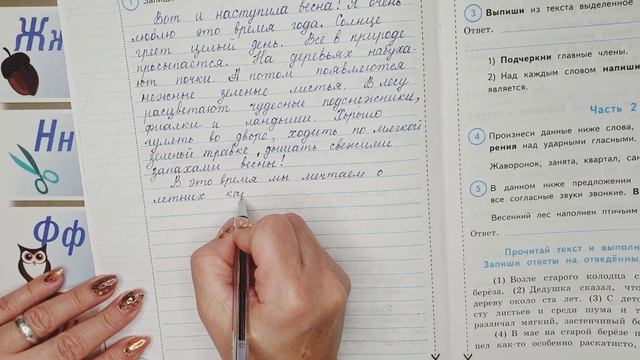 Жж
Нн
Фф
1 Запиши
Вот и наступила весна! Я очень
люблю это время года. Солнце
греет целый день. Всё в природе
просыпается. На деревьях набуха-
ют почки. А потом появляются
нежные зеленые листья. В лесу
расцветают чудесные подснежники,
фиалки и ландыши. Хорошо
гулять во дворе, ходить по мягкой
зеленой травке, дышать свежими
запахами весны!
В это время мы мечтаем о
летних ка
3 Выпиши из текста выделенное
Ответ.
1) Подчеркни главные члены.
2) Над каждым словом напиши
является.
Часть 2
4 Произнеси данные ниже слова,
рения над ударными гласными.
Жаворонок, занята, квартал, са
5 В данном ниже предложении
все согласные звуки звонкие. В
Весенний лес наполнен птичьим
Ответ.
Прочитай текст и выполн
Запиши ответы на отведённы
(1) Возле старого колодца с
берёза. (2) Дедушка сказал,
дереву около ста лет. (3) С детс
сту листьев и среди шума и т
различал мягкий, застенчивый б
(4) В мае на старой берёзе п
пел как-то особенно раскатисто,